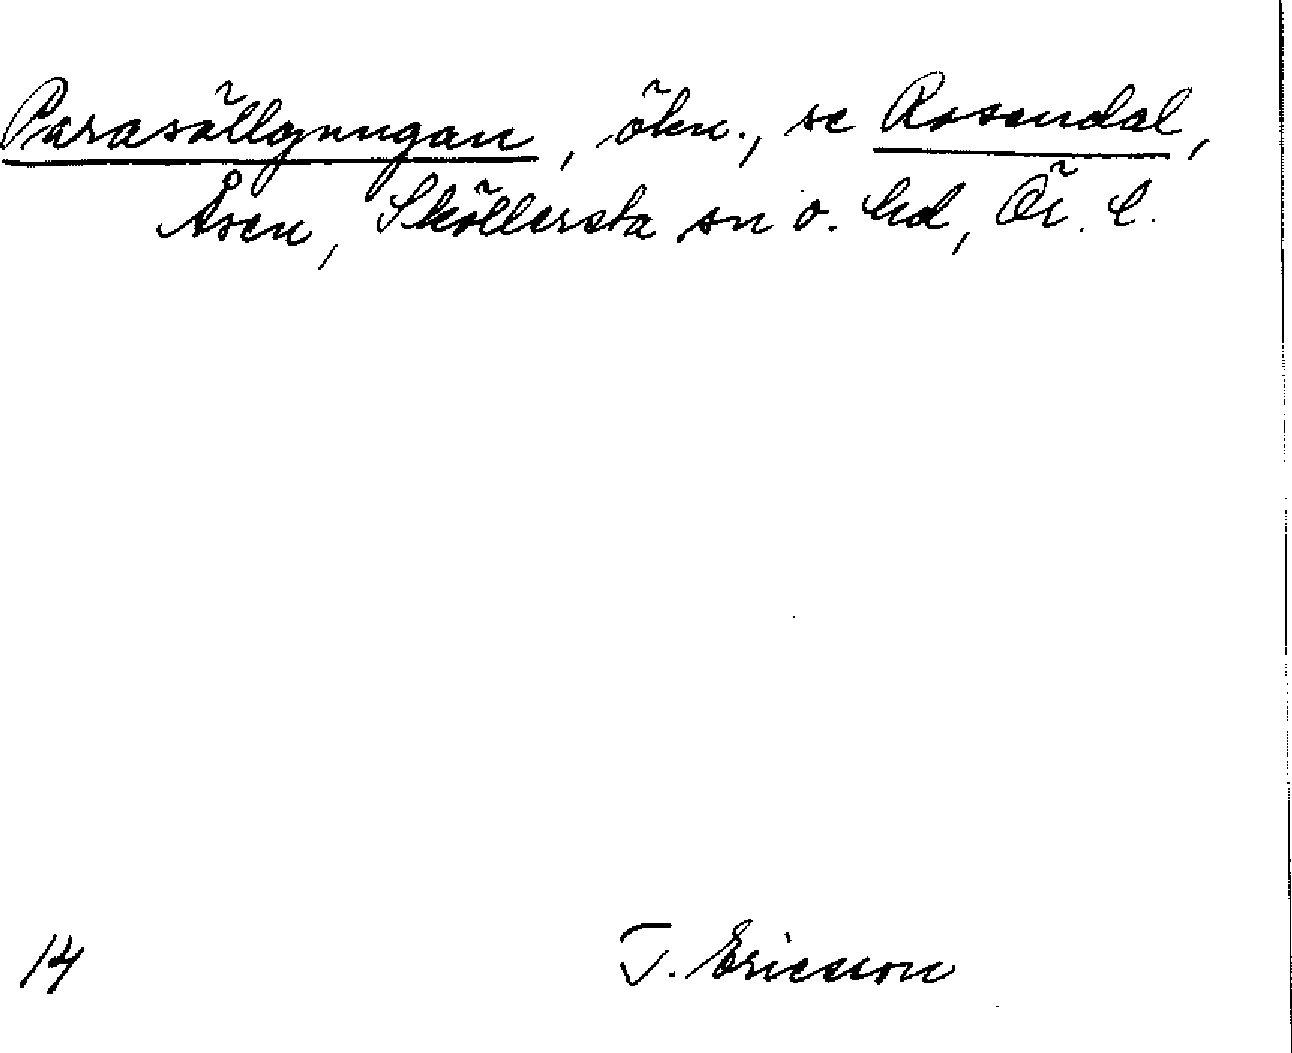 Parasöllgungan, ökn., se Rosendal,
Åsen, Sköllersta sn o. hd, Ör. l.
14
T. Ericsson